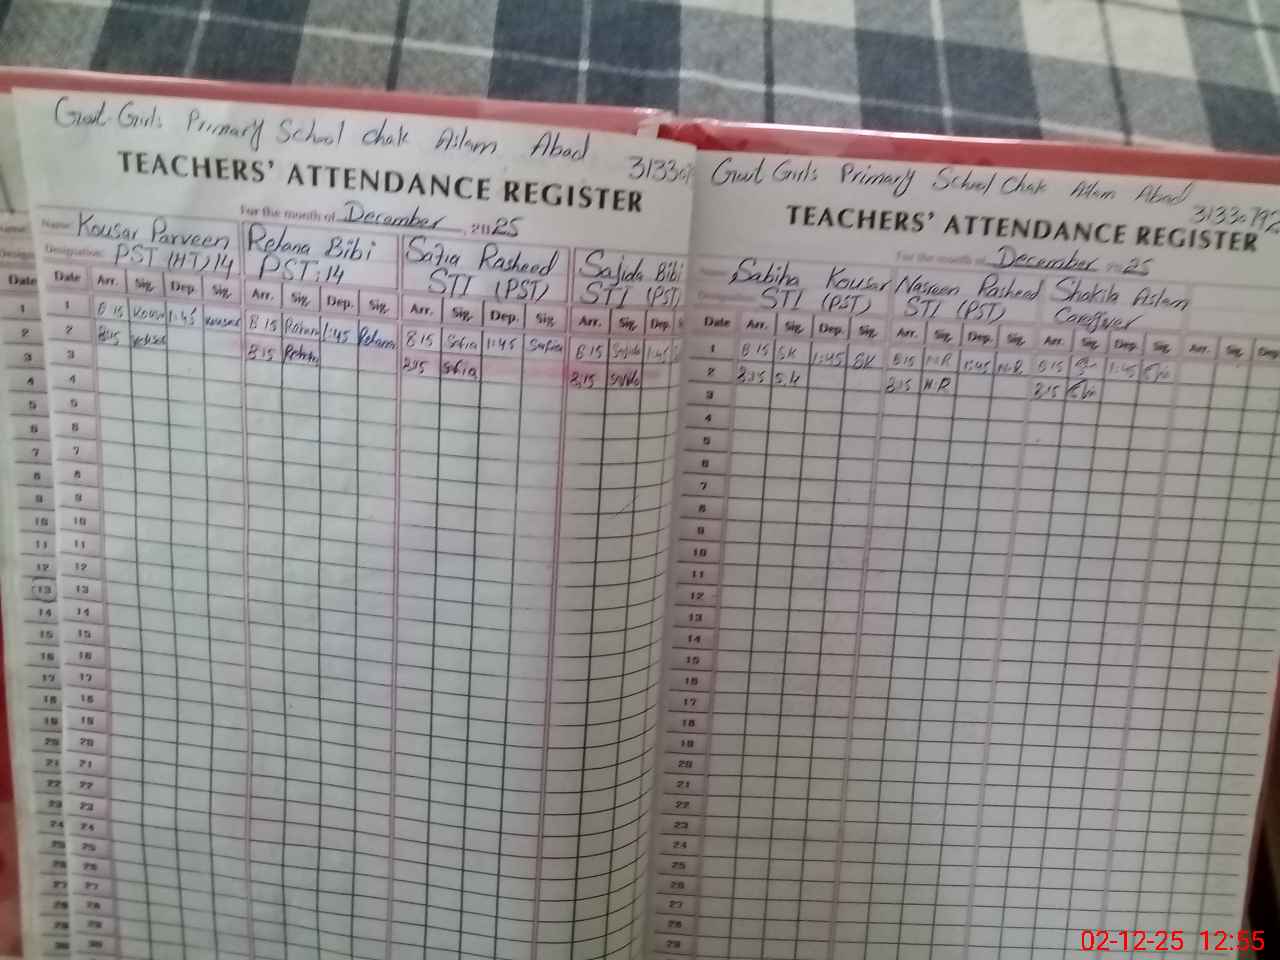 Govt Girls Primary School Chak Aslam Abad
TEACHERS' ATTENDANCE REGISTER
For the month of December 2025
Name: Kousar Parveen Rehana Bibi Safia Rasheed Sajida Bibi
Designation: PST (HT) 14 PST: 14 STI (PST) STI (PST)
Date Arr. Sig. Dep. Sig. Arr. Sig. Dep. Sig. Arr. Sig. Dep. Sig. Arr. Sig. Dep.
1 8 15 1:45 Kousar 8 15 1:45 Rehana 8 15 Safia 1:45 Safia 8 15 Sajida 1:45
2 8:15 8:15 8:15 Safia 8:15
3
4
5
6
7
8
9
10
11
12
13
14
15
16
17
18
19
20
21
22
23
24
25
26
27
28
29
30
Govt Girls Primary School Chak Aslam Abad
31330792
TEACHERS' ATTENDANCE REGISTER
For the month of December 25
Sabiha Kousar Nasreen Rasheed Shakila Aslam
STI (PST) STI (PST) Caregiver
Date Arr. Sig. Dep. Sig. Arr. Sig. Dep. Sig. Arr. Sig. Dep. Sig. Arr. Sig. Dep.
1 8 15 SK 1:45 SK 8 15 N.R 1:45 N.R 8 15 1:45
2 8:15 S.K 8:15 N.R 8:15
3
4
5
6
7
8
9
10
11
12
13
14
15
16
17
18
19
20
21
22
23
24
25
26
27
28
29
02-12-25 12:55